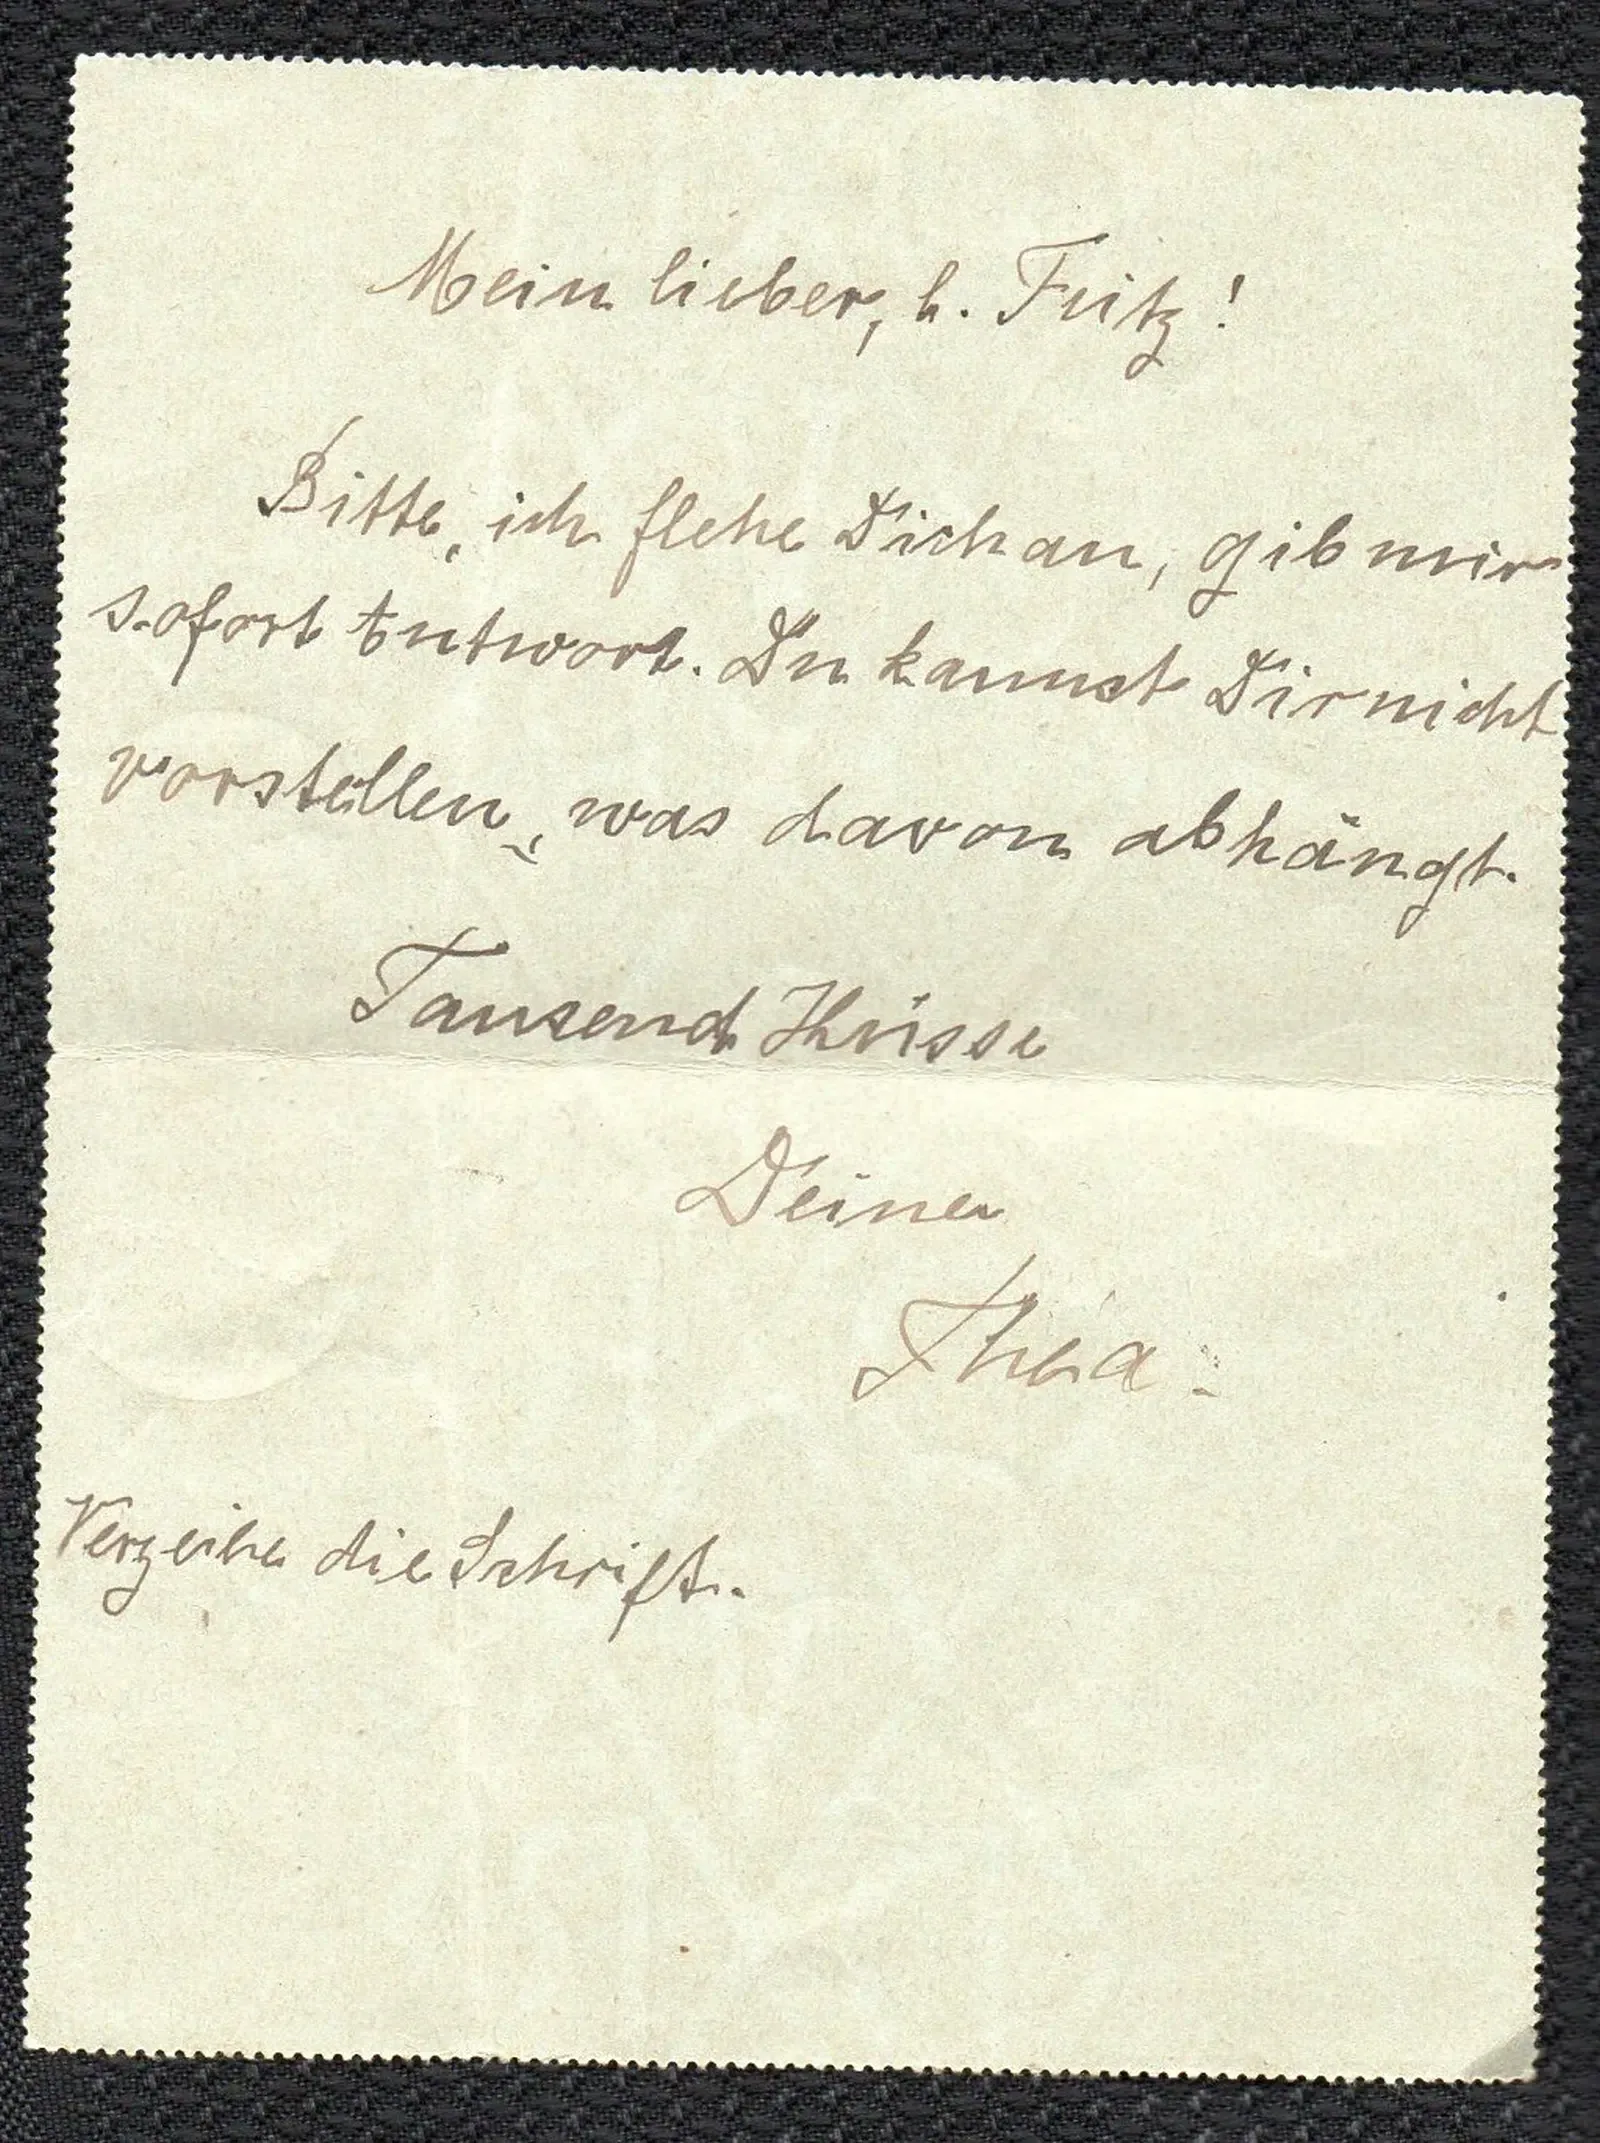 Mein lieber, l. Fritz!
Bitte, ich flehe Dich an, gib mir
sofort Antwort. Du kannst Dir nicht
vorstellen, was davon abhängt.
Tausend Küsse
Deine
Thea.
Verzeihe die Schrift.